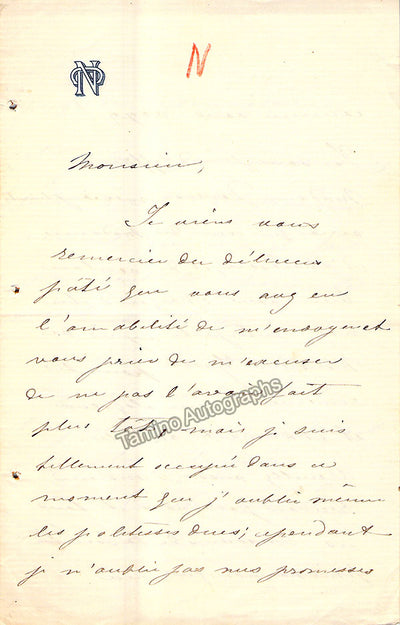 N
Monsieur,
Je viens vous
remercier du délicieux
pâté que vous avez eu
l'amabilité de m'envoyer et
vous prier de m'excuser
de ne pas l'avoir fait
plus tôt, mais je suis
tellement occupée dans ce
moment que j'oublie même
les politesses dues; cependant
je n'oublie pas mes promesses
Tamino Autographs